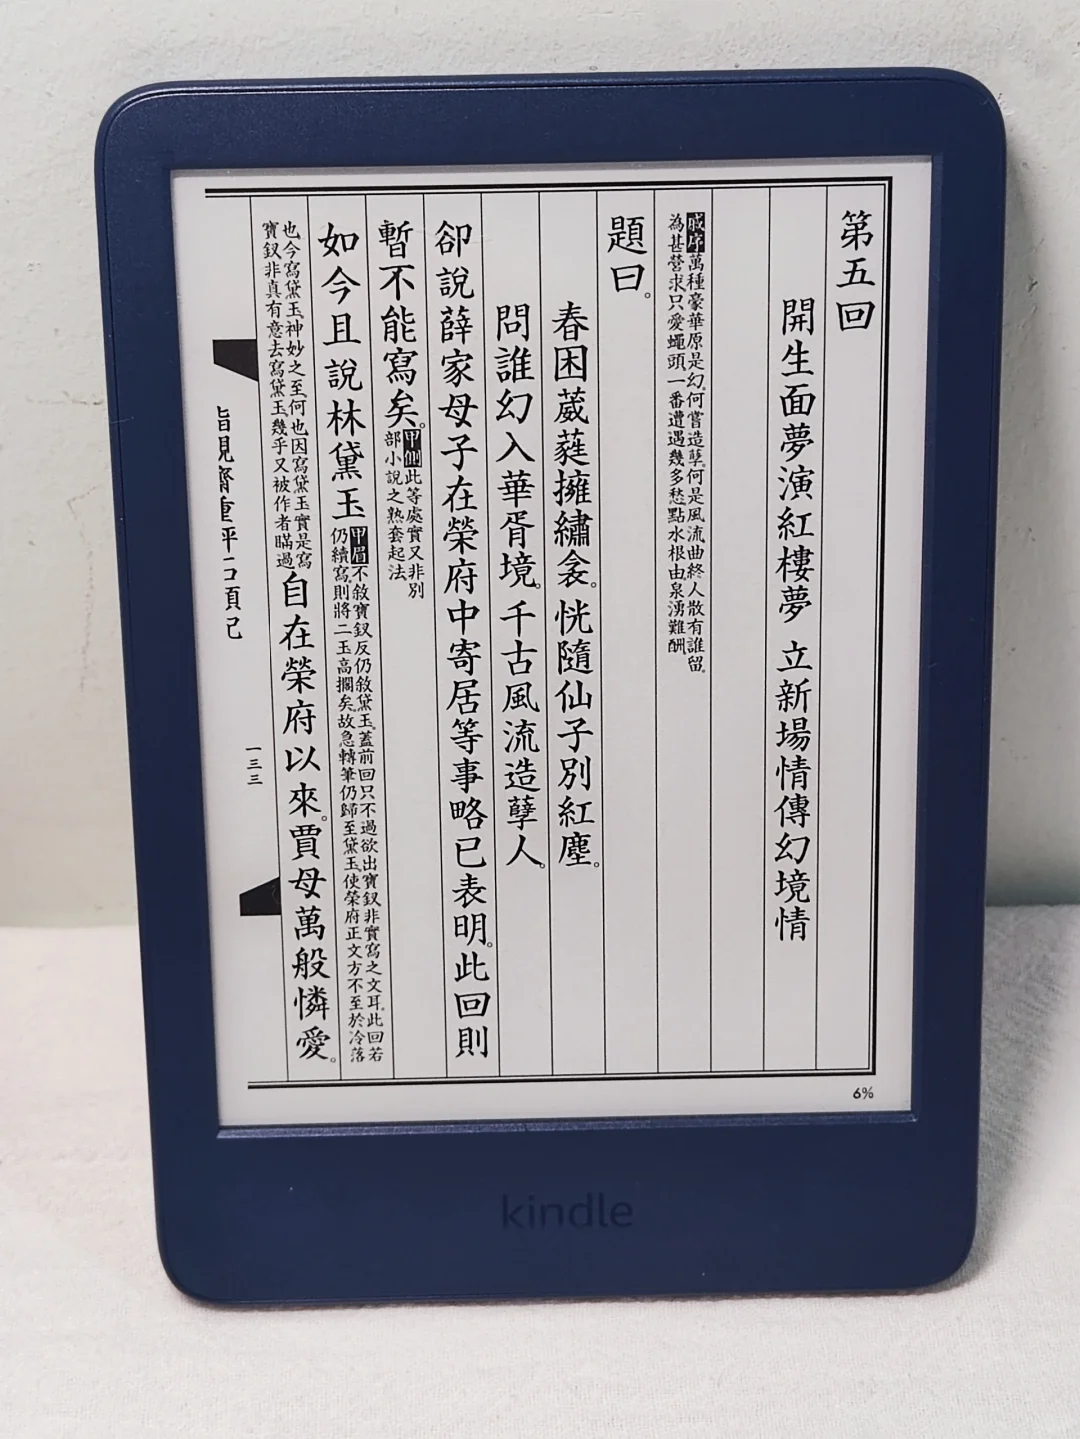 第五回
開生面夢演紅樓夢 立新場情傳幻境情
戚序萬種豪華原是幻。何嘗造孽。何是風流曲終人散有誰留。
為甚營求只愛蠅頭一番遭遇幾多愁點水根由泉湧難酬
題曰。
春困葳蕤擁繡衾。恍隨仙子別紅塵。
問誰幻入華胥境。千古風流造孽人。
卻說薛家母子在榮府中寄居等事略已表明。此回則
暫不能寫矣。甲側此等處實又非別
部小說之熟套起法
如今且說林黛玉甲眉不敘寶釵反仍敘黛玉。蓋前回只不過欲出寶釵非實寫之文耳。此回若
仍續寫。則將二玉高擱矣。故急轉筆仍歸至黛玉。使榮府正文方不至於冷落
也今寫黛玉神妙之至何也因寫黛玉實是寫
寶釵非真有意去寫黛玉。幾乎又被作者瞞過
自在榮府以來。賈母萬般憐愛。
一三三
6%
kindle